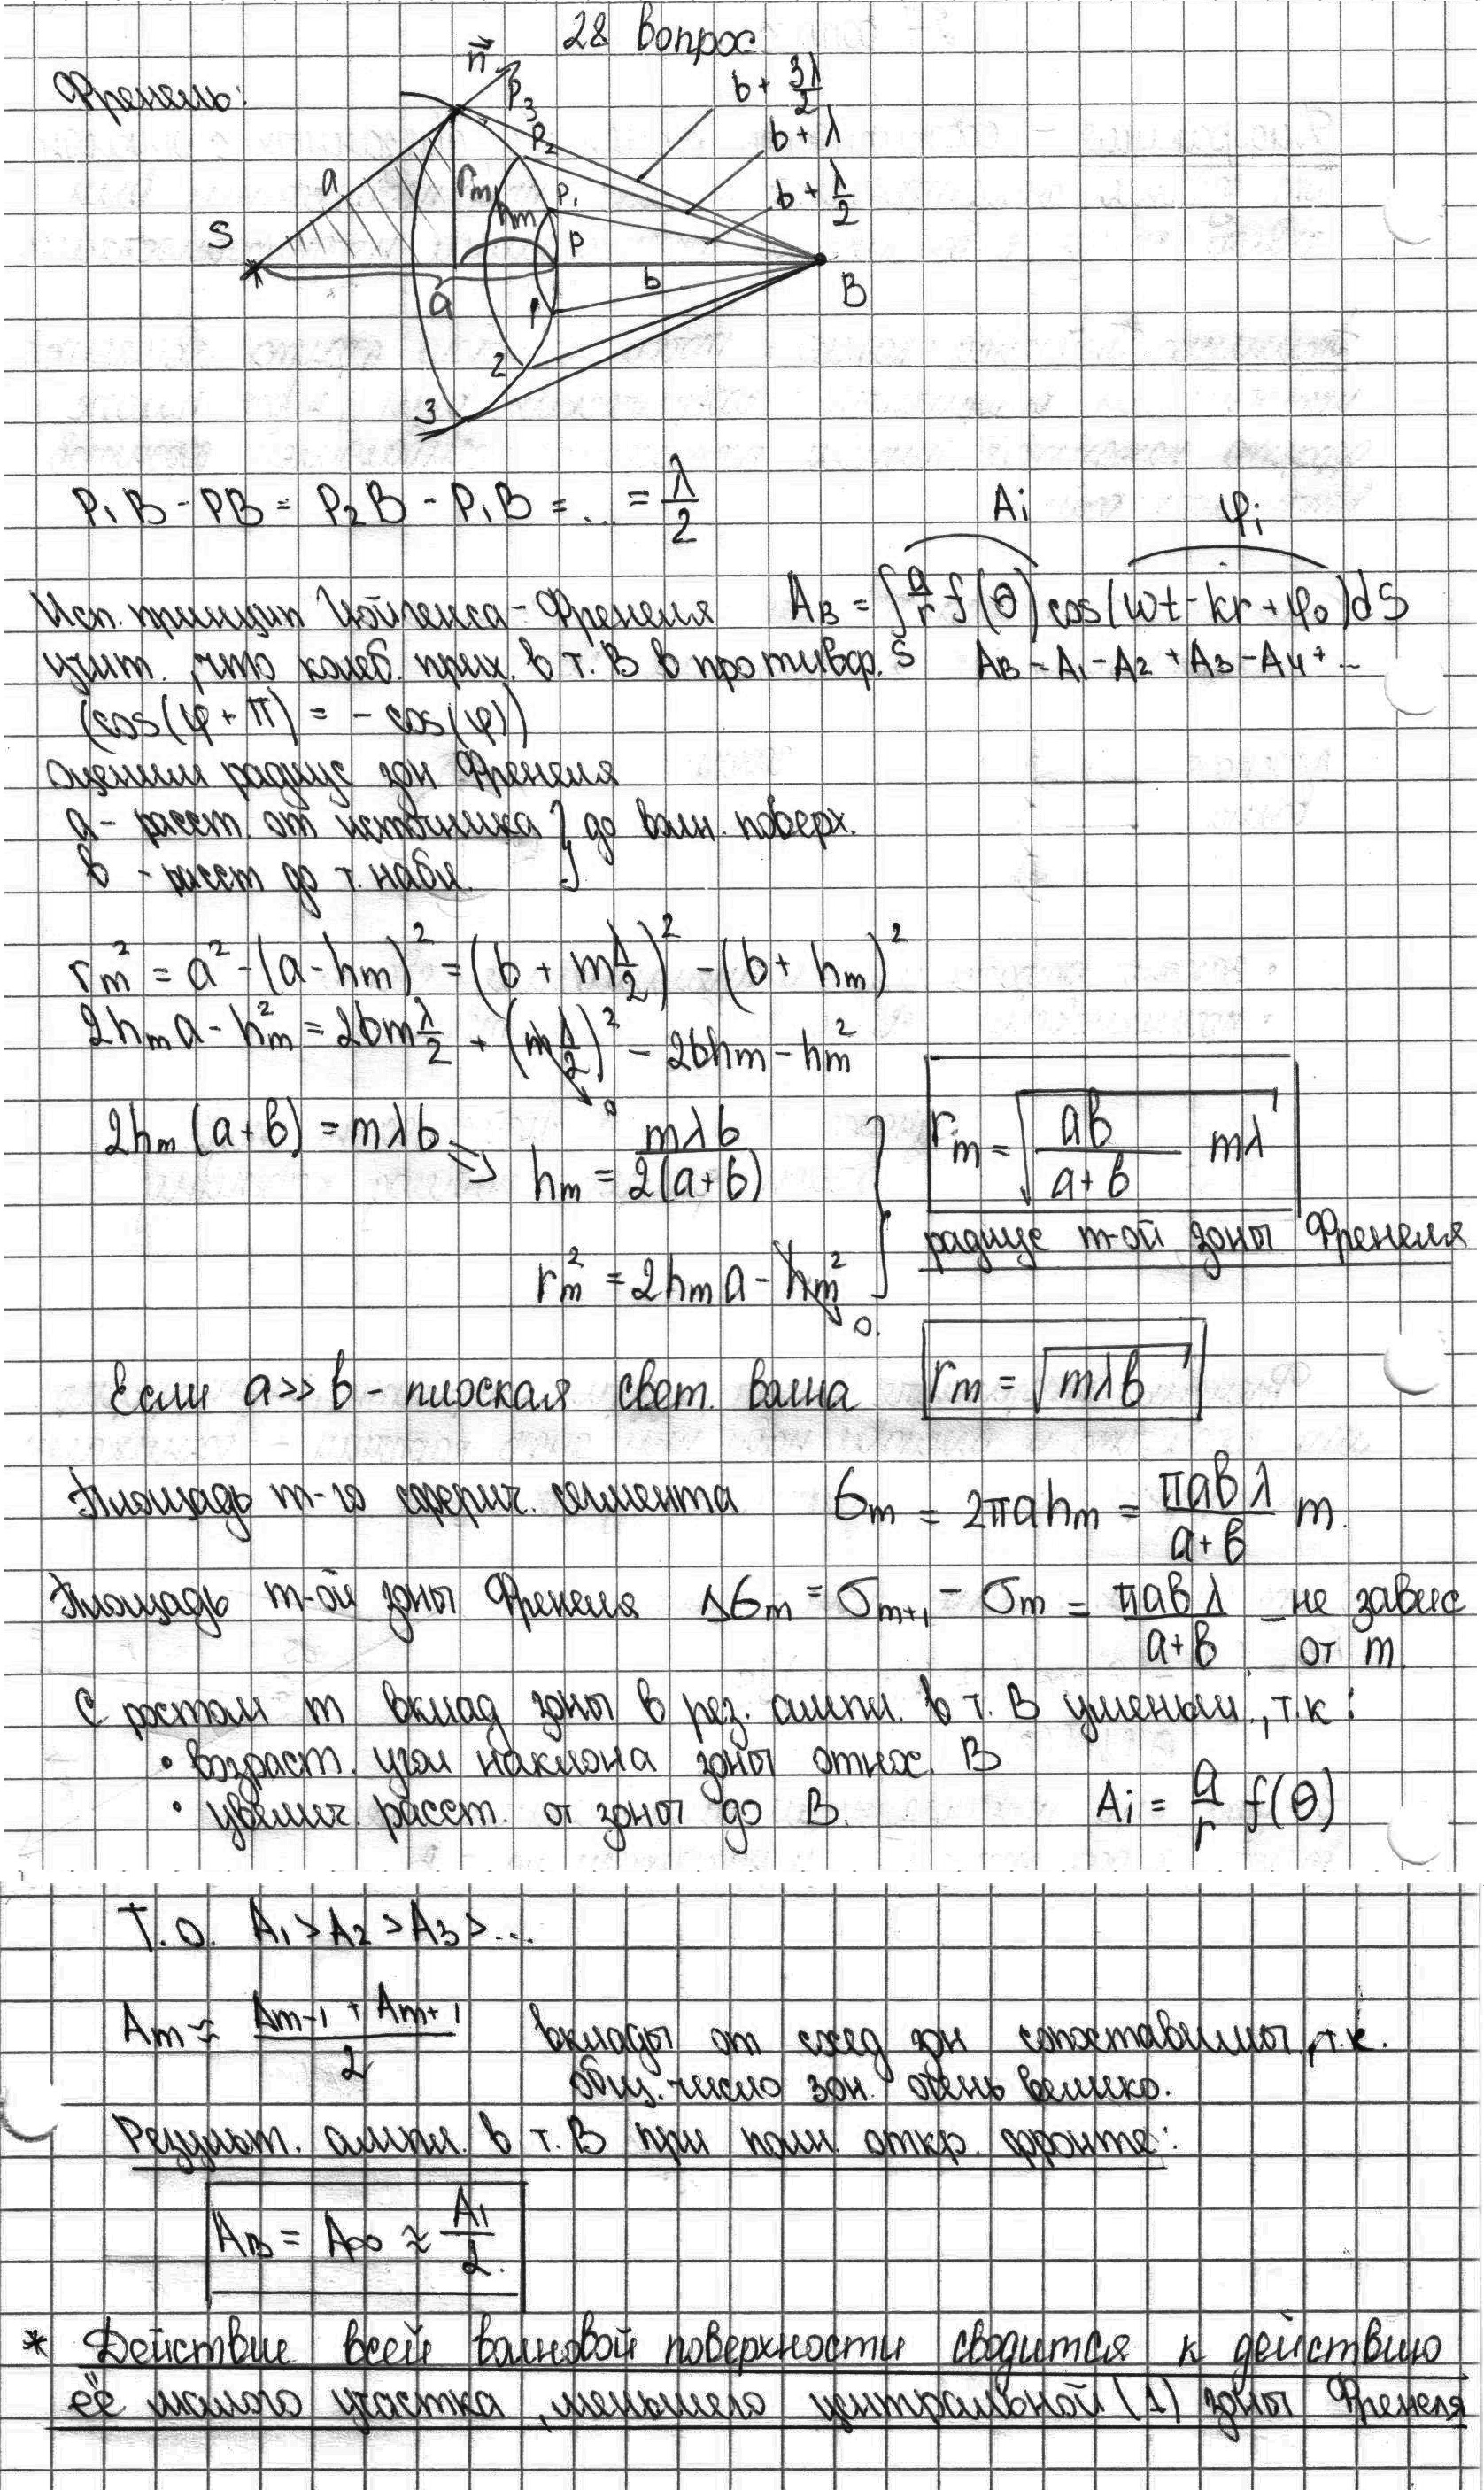 28 вопрос
Френель:
n⃗
P₃
P₂
P₁
P
b + 3λ/2
b + λ
b + λ/2
a
rₘ
hₘ
S
a
b
B
1
2
3
P₁B - PB = P₂B - P₁B = ... = λ/2
Aᵢ φᵢ
Исп. принцип Гюйгенса-Френеля A_B = ∫ a/r f(θ) cos(ωt - kr + φ₀) dS
S
учит., что колеб. прих. в т. B в противоф. A_B = A₁ - A₂ + A₃ - A₄ + ...
(cos(φ + π) = - cos(φ))
Оценим радиус зон Френеля
a - расст. от источника } до волн. поверх.
b - расст до т. набл.
rₘ² = a² - (a - hₘ)² = (b + m λ/2)² - (b + hₘ)²
2hₘa - hₘ² = 2bm λ/2 + (m λ/2)² - 2bhₘ - hₘ²
0
2hₘ (a + b) = mλb => hₘ = mλb / 2(a + b)
rₘ = √(ab/(a + b) mλ)
радиус m-ой зоны Френеля
rₘ² = 2hₘa - hₘ²
0
Если a >> b - плоская свет. волна rₘ = √(mλb)
Площадь m-го сферич. сегмента σₘ = 2πahₘ = πabλ/(a + b) m
Площадь m-ой зоны Френеля Δσₘ = σₘ₊₁ - σₘ = πabλ/(a + b) - не завис от m
С ростом m вклад зоны в рез. ампл. в т. B уменьш., т.к:
• возраст. угол наклона зоны относ. B
• увелич. расст. от зоны до B. Aᵢ = a/r f(θ)
Т.о. A₁ > A₂ > A₃ > ...
Aₘ ≈ (Aₘ₋₁ + Aₘ₊₁)/2 вклады от сосед зон сопоставимы, т.к.
общ. число зон. очень велико.
Результ. ампл. в т. B при полн. откр. фронте:
A_B = A∞ ≈ A₁/2.
* Действие всей волновой поверхности сводится к действию
её малого участка, меньшего центральной (1) зоны Френеля